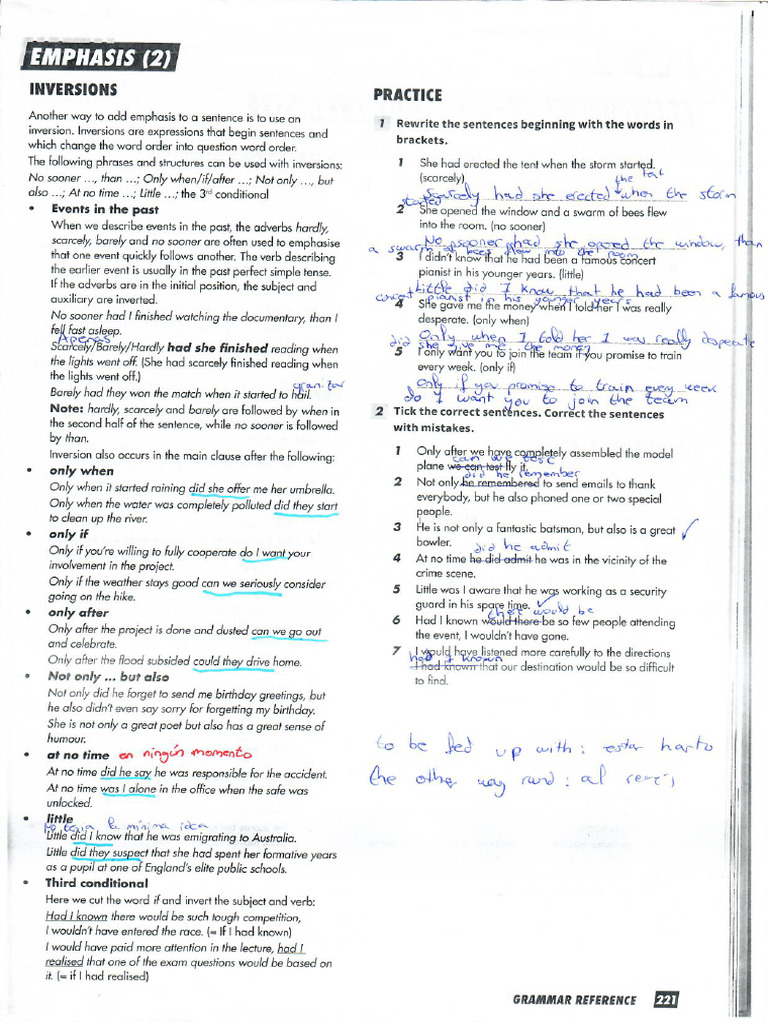 EMPHASIS (2)
INVERSIONS
Another way to add emphasis to a sentence is to use an
inversion. Inversions are expressions that begin sentences and
which change the word order into question word order.
The following phrases and structures can be used with inversions:
No sooner ..., than ...; Only when/if/after ...; Not only ..., but
also ...; At no time ...; Little ...; the 3rd conditional
• Events in the past
When we describe events in the past, the adverbs hardly,
scarcely, barely and no sooner are often used to emphasise
that one event quickly follows another. The verb describing
the earlier event is usually in the past perfect simple tense.
If the adverbs are in the initial position, the subject and
auxiliary are inverted.
No sooner had I finished watching the documentary, than I
fell fast asleep.
Apenas
Scarcely/Barely/Hardly had she finished reading when
the lights went off. (She had scarcely finished reading when
the lights went off.)
granizar
Barely had they won the match when it started to hail.
Note: hardly, scarcely and barely are followed by when in
the second half of the sentence, while no sooner is followed
by than.
Inversion also occurs in the main clause after the following:
• only when
Only when it started raining did she offer me her umbrella.
Only when the water was completely polluted did they start
to clean up the river.
• only if
Only if you're willing to fully cooperate do I want your
involvement in the project.
Only if the weather stays good can we seriously consider
going on the hike.
• only after
Only after the project is done and dusted can we go out
and celebrate.
Only after the flood subsided could they drive home.
• Not only ... but also
Not only did he forget to send me birthday greetings, but
he also didn't even say sorry for forgetting my birthday.
She is not only a great poet but also has a great sense of
humour.
• at no time en ningún momento
At no time did he say he was responsible for the accident.
At no time was I alone in the office when the safe was
unlocked.
• little
No tenia la mínima idea
Little did I know that he was emigrating to Australia.
Little did they suspect that she had spent her formative years
as a pupil at one of England's elite public schools.
• Third conditional
Here we cut the word if and invert the subject and verb:
Had I known there would be such tough competition,
I wouldn't have entered the race. (= If I had known)
I would have paid more attention in the lecture, had I
realised that one of the exam questions would be based on
it. (= if I had realised)
PRACTICE
1 Rewrite the sentences beginning with the words in
brackets.
1 She had erected the tent when the storm started.
(scarcely)
the tent
Scarcely had she erected when the storm
started
2 She opened the window and a swarm of bees flew
into the room. (no sooner)
No sooner had she opened the window, than
a swarm of bees flew into the room
3 I didn't know that he had been a famous concert
pianist in his younger years. (little)
Little did I know that he had been a famous
concert pianist in his younger years
4 She gave me the money when I told her I was really
desperate. (only when)
Only when I told her I was really desperate
did she give me the money
5 I only want you to join the team if you promise to train
every week. (only if)
Only if you promise to train every week
do I want you to join the team
2 Tick the correct sentences. Correct the sentences
with mistakes.
1 Only after we have completely assembled the model
can we test
plane we can test fly it.
did he remember
2 Not only he remembered to send emails to thank
everybody, but he also phoned one or two special
people.
3 He is not only a fantastic batsman, but also is a great
bowler. ✓
did he admit
4 At no time he did admit he was in the vicinity of the
crime scene.
5 Little was I aware that he was working as a security
guard in his spare time. ✓
there would be
6 Had I known would there be so few people attending
the event, I wouldn't have gone.
7 I would have listened more carefully to the directions
had I known
I had known that our destination would be so difficult
to find.
to be fed up with: estar harto
the other way rund: al revés
GRAMMAR REFERENCE 221